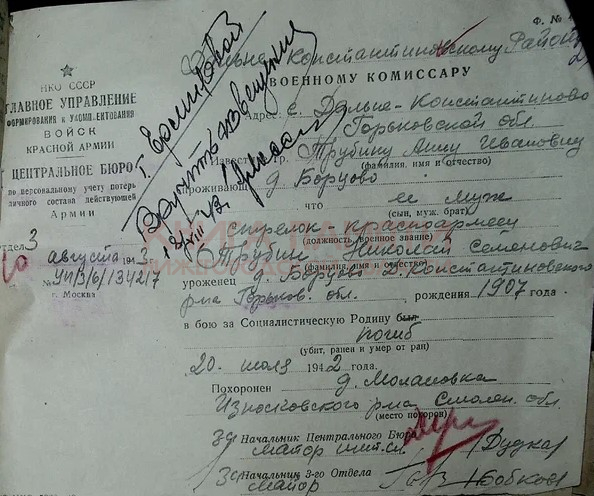 Ф. №
Дальне-Константиновскому Району
ВОЕННОМУ КОМИССАРУ
НКО СССР
ГЛАВНОЕ УПРАВЛЕНИЕ
ФОРМИРОВАНИЯ и УКОМПЛЕКТОВАНИЯ
ВОЙСК
КРАСНОЙ АРМИИ
ЦЕНТРАЛЬНОЕ БЮРО
по персональному учету потерь
личного состава действующей
Армии
отдел 3
августа 1943 г.
№ УН/3/6/134217
г. Москва
г.
Вручить извещение
13/VIII-43
Адрес: с. Дальне-Константиново
Горьковской обл.
Известить гр. Трубину Анну Ивановну
(фамилия, имя и отчество)
проживающую д. Борцово
что ее муж
(сын, муж, брат)
стрелок-красноармеец
(должность, военное звание)
Трубин Николай Семенович
(фамилия, имя и отчество)
уроженец д. Борцово Д. Константиновского
р-на Горьков. обл. рождения 1907 года
в бою за Социалистическую Родину был
погиб
(убит, ранен и умер от ран)
20 июля 1942 года.
Похоронен д. Молановка
Износковского р-на Смолен. обл.
(место похорон)
Зд Начальник Центрального Бюро
майор инт. сл.
Зд Начальник 3-го Отдела
майор Бобков